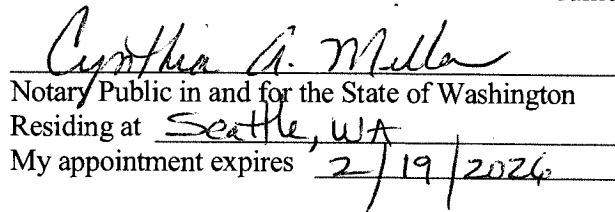 Cynthia A. Miller
Notary Public in and for the State of Washington
Residing at Seattle, WA
My appointment expires 2/19/2026